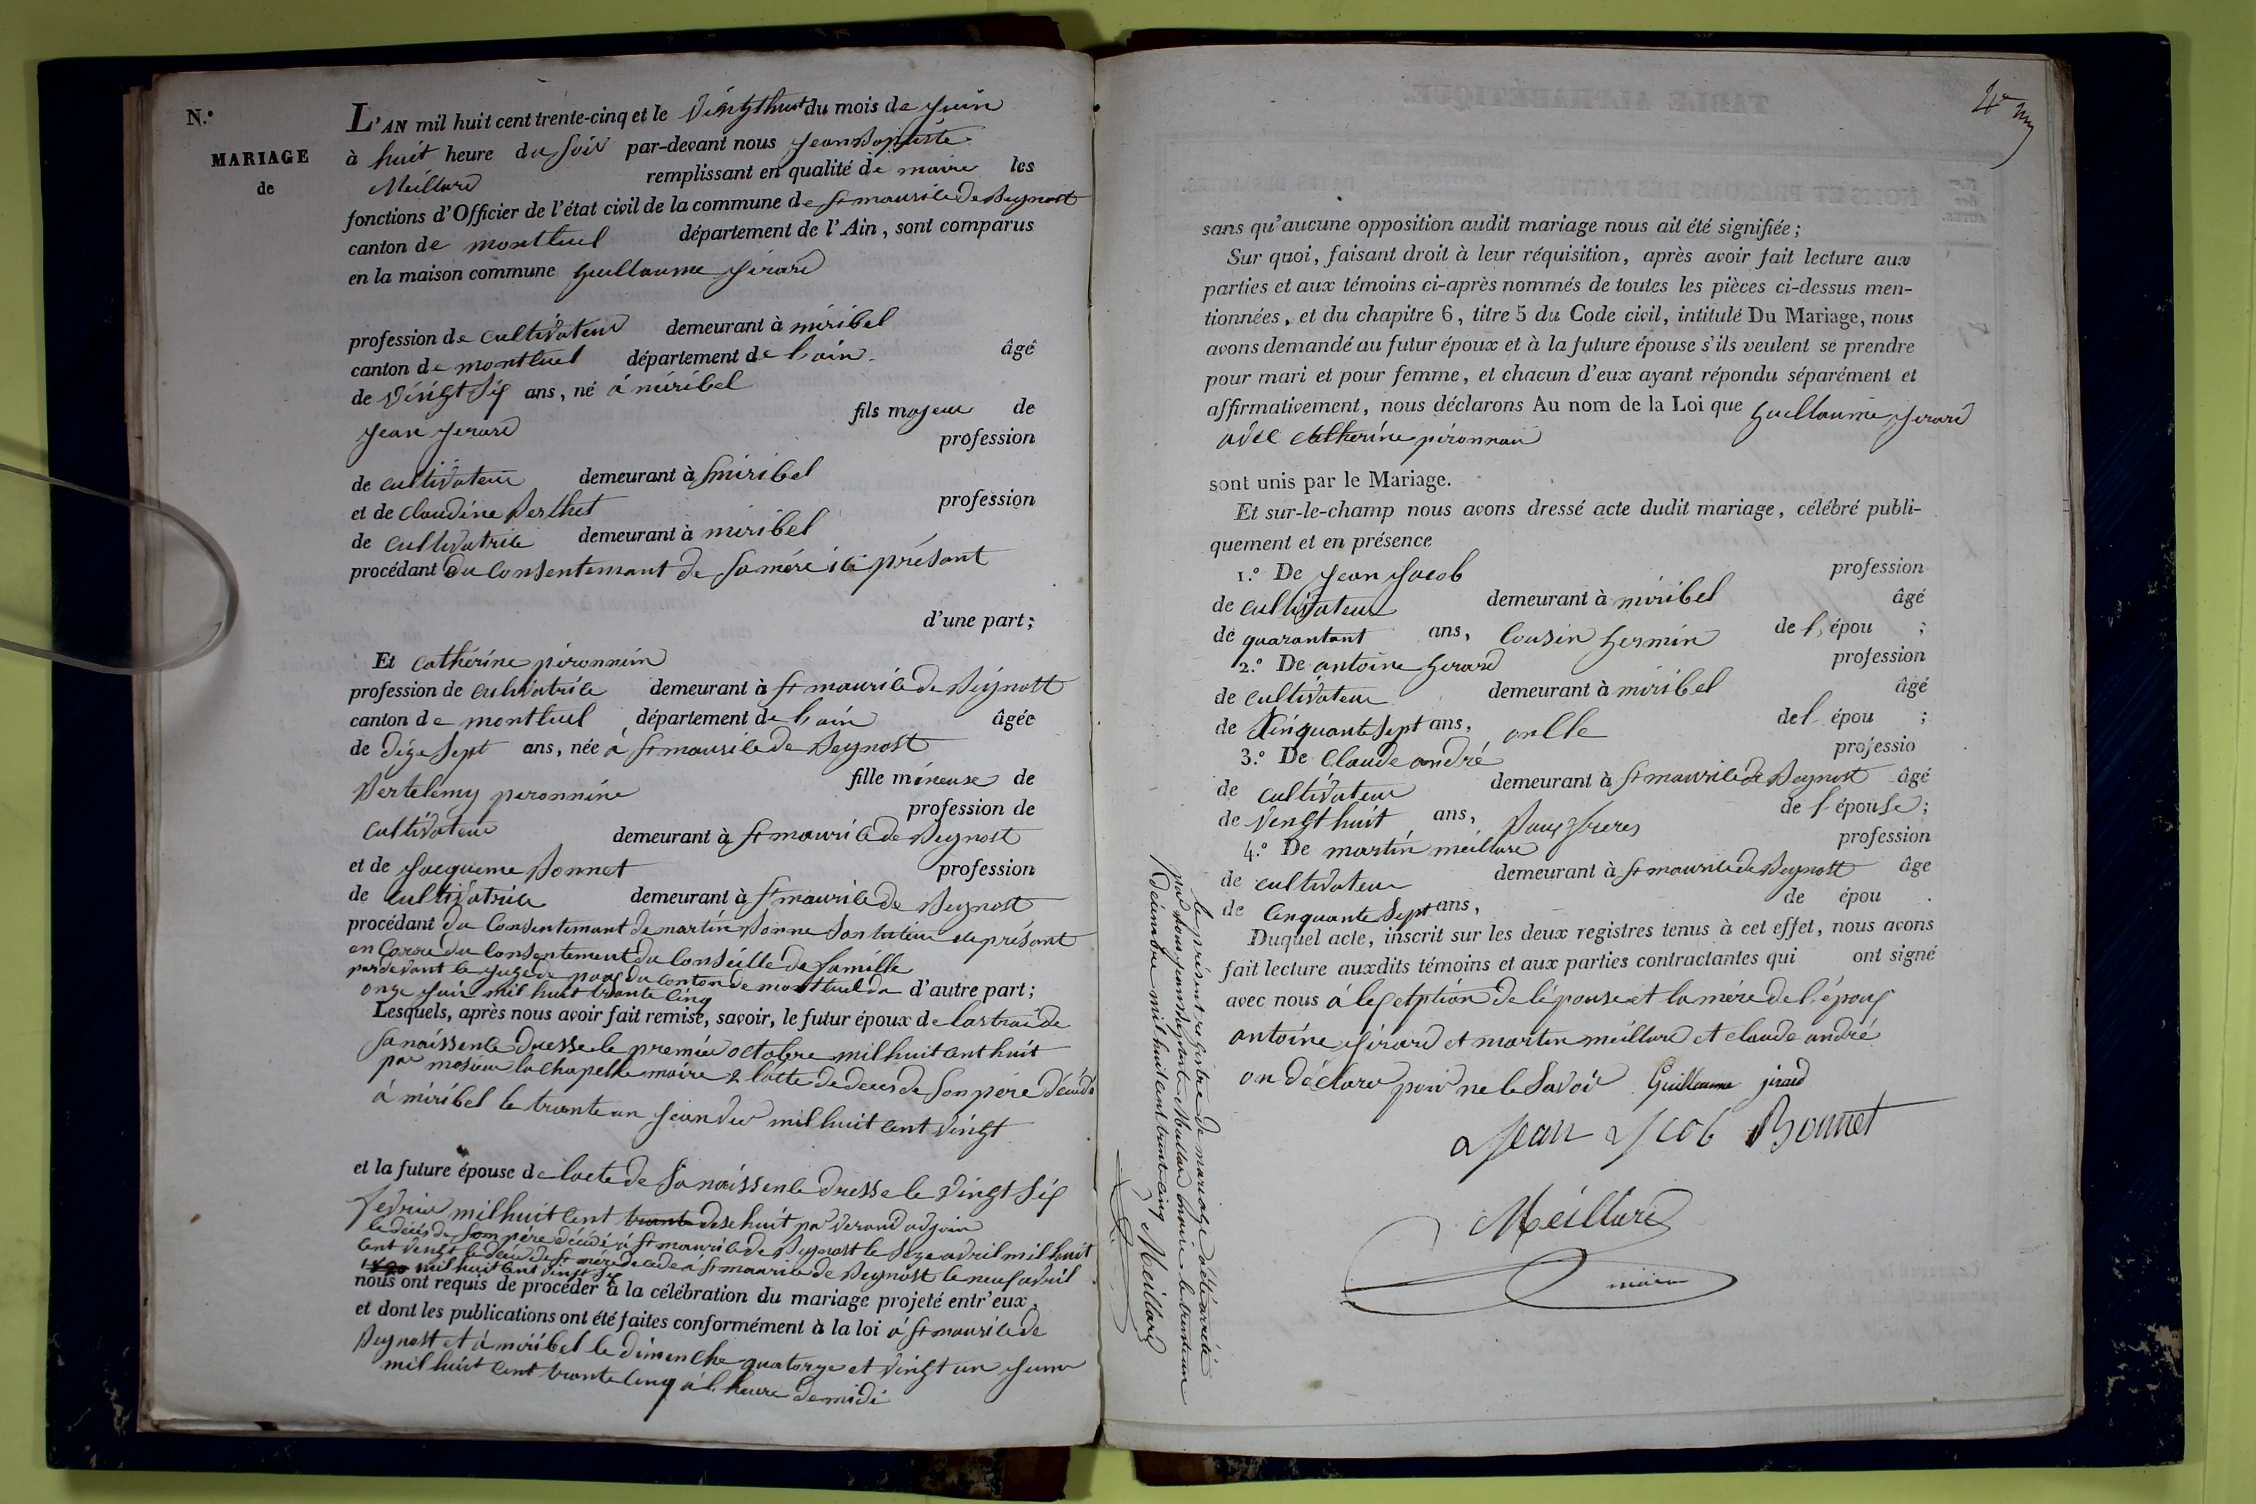 N.°
MARIAGE
de
L'AN mil huit cent trente-cinq et le vingthuit du mois de juin
à huit heure du soir par-devant nous jean Baptiste
Meillard remplissant en qualité de maire les
fonctions d'Officier de l'état civil de la commune de st maurice de Beynost
canton de montluel département de l'Ain, sont comparus
en la maison commune guillaume girard
profession de cultivateur demeurant à miribel
canton de montluel département de l'ain. âgé
de vingt six ans, né à miribel
fils majeur de
jean jerard profession
de cultivateur demeurant à miribel
et de claudine Berthet profession
de cultivatrice demeurant à miribel
procédant du consentemant de sa mére ici présant
d'une part;
Et cathérine péronnin
profession de cultivatrice demeurant à st maurice de Beynost
canton de montluel département de l'ain âgée
de dize sept ans, née à st maurice de Beynost
fille mineuse de
Bertelemy peronnine profession de
cultivateur demeurant à st maurice de Beynost
et de jacqueme Bonnet profession
de cultivatrice demeurant à st maurice de Beynost
procédant du consentemant de martin Bonne son tuteur ici présant
en corre du consentement du conseille de famille
pardevant le juge de paix du canton de montluel da d'autre part;
onze juin mil huit trante cinq
Lesquels, après nous avoir fait remise, savoir, le futur époux de lastrai de
sa naissence dresse le premier octobre mil huit cent huit
par mosieur la chapelle maire & l'acte de deces de son pére décidé
à miribel le trante un janvier mil huit cent vingt
et la future épouse de l'acte de sa naissence dresse le vingt six
fevrier mil huit cent trante dese huit par verand adjoin
le décés de son pére décedé à st maurice de Beynost le seze avril mil huit
cent vingt le deces de sa mére decede à st maurice de Beynost le neuf avril
1820 mil huit cent vingt six
nous ont requis de procéder à la célébration du mariage projeté entr'eux,
et dont les publications ont été faites conformément à la loi à st maurice de
Beynost et à miribel le dimenche quatorze et vingt un juin
mil huit cent trante cinq à l'heure de midi
4e
sans qu'aucune opposition audit mariage nous ait été signifiée;
Sur quoi, faisant droit à leur réquisition, après avoir fait lecture aux
parties et aux témoins ci-après nommés de toutes les pièces ci-dessus men-
tionnées, et du chapitre 6, titre 5 du Code civil, intitulé Du Mariage, nous
avons demandé au futur époux et à la future épouse s'ils veulent se prendre
pour mari et pour femme, et chacun d'eux ayant répondu séparément et
affirmativement, nous déclarons Au nom de la Loi que guillaume jerard
avec catherine péronnan
sont unis par le Mariage.
Et sur-le-champ nous avons dressé acte dudit mariage, célébré publi-
quement et en présence
1.° De jean jacob profession
de cultivateur demeurant à miribel âgé
de quarantant ans, cousin germin de l'épou ;
2.° De antoine gerard profession
de cultivateur demeurant à miribel âgé
de cinquante sept ans, oncle de l'épou ;
3.° De claude andré professio
de cultivateur demeurant à st maurice de Beynost âgé
de vingt huit ans, Baux freres de l'épouse;
4.° De martin meillare profession
de cultivateur demeurant à st maurice de Beynost âge
de cinquante sept ans, de épou .
Duquel acte, inscrit sur les deux registres tenus à cet effet, nous avons
fait lecture auxdits témoins et aux parties contractantes qui ont signé
avec nous à l'exetption de l'épouse et la mére de l'époux
antoine girard et martin meillare et claude andré
on déclare pour ne le savoir Guillaume jirard
Jean Jcob Bonnet
Meillard
maire
le présent registre de mariage a été arreté
par nous jean Meillard maire le trenteun
décembre mil huit cent trante cinq Meillard